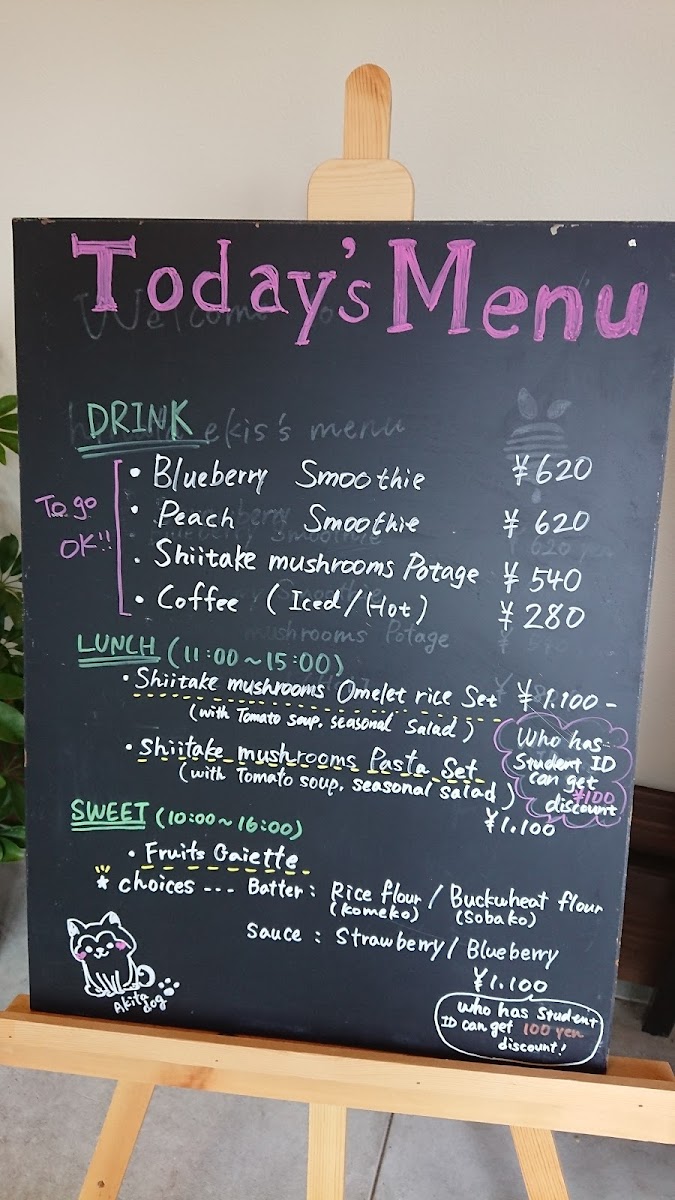 Today's Menu
DRINK
To go
OK!!
• Blueberry Smoothie ¥620
• Peach Smoothie ¥620
• Shiitake mushrooms Potage ¥540
• Coffee (Iced/Hot) ¥280
LUNCH (11:00~15:00)
• Shiitake mushrooms Omelet rice Set ¥1.100-
(with Tomato soup. seasonal salad)
• Shiitake mushrooms Pasta Set
(with Tomato soup. seasonal salad)
¥1.100
Who has
Student ID
can get
¥100
discount
SWEET (10:00~16:00)
• Fruits Galette
* choices --- Batter : Rice flour / Buckwheat flour
(Komeko) (Sobako)
sauce : Strawberry / Blueberry
¥1.100
who has Student
ID can get 100 yen
discount!
Akita
dog
ekis's menu
mushrooms Potage